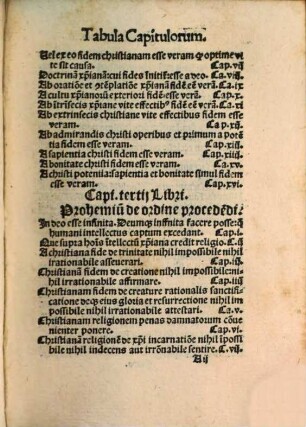 Tabula Capitulorum.
Vel ex eo fidem christianam esse veram ꝙ optime vi
te sit causa. Cap.vij
Doctrinā xp̄ianā: cui fides īnitit̄: esse a deo. Ca.viij.
Ab oratiōe et ꝯtēplatiōe xp̄iana fidē eē verā. Ca.ix
A cultu xp̄ianoꝝ exteriori fidē: esse verā. Ca.x.
Ab ītrīsecis xp̄iane vite effectibꝰ fidē eē verā. Ca.xi
Ab extrinsecis christiane vite effectibus fidem esse
veram. Cap.xij.
Ab admirandis christi operibus et primum a potē
tia fidem esse veram. Cap.xiij.
A sapientia christi fidem esse veram. Cap.xiiij.
A bonitate christi fidem esse veram. Ca.xv.
A christi potenia: sapientia et bonitate simul fidem
esse veram. Cap.xvi.
Capi. tertij Libri.
Prohemiū de ordine procedēdi.
In deo esse infinita. Deumqꝫ infinita facere posse: q̄
humani intellectus captum excedant. Cap.i.
Que supra hoīs ītellectū xp̄iana credit religio. C.ij
A christiana fide de trinitate nihil impossibile nihil
irrationabile asseuerari. Cap.iij
Christianā fidem de creatione nihil impossibile: ni
hil irrationabile affirmare. Cap.iiij
Christianam fidem de creature rationalis sanctifi
catione deqꝫ eius gloria et resurrectione nihil im
possibile nihil irrationabile attestari. Ca.v.
Christianam religionem penas damnatorum cōue
nienter ponere. Cap.vi.
Christianā religionē de xp̄i incarnatiōe nihil īpossi
bile nihil indecens aut irrōnabile sentire. C.vij.
A ij